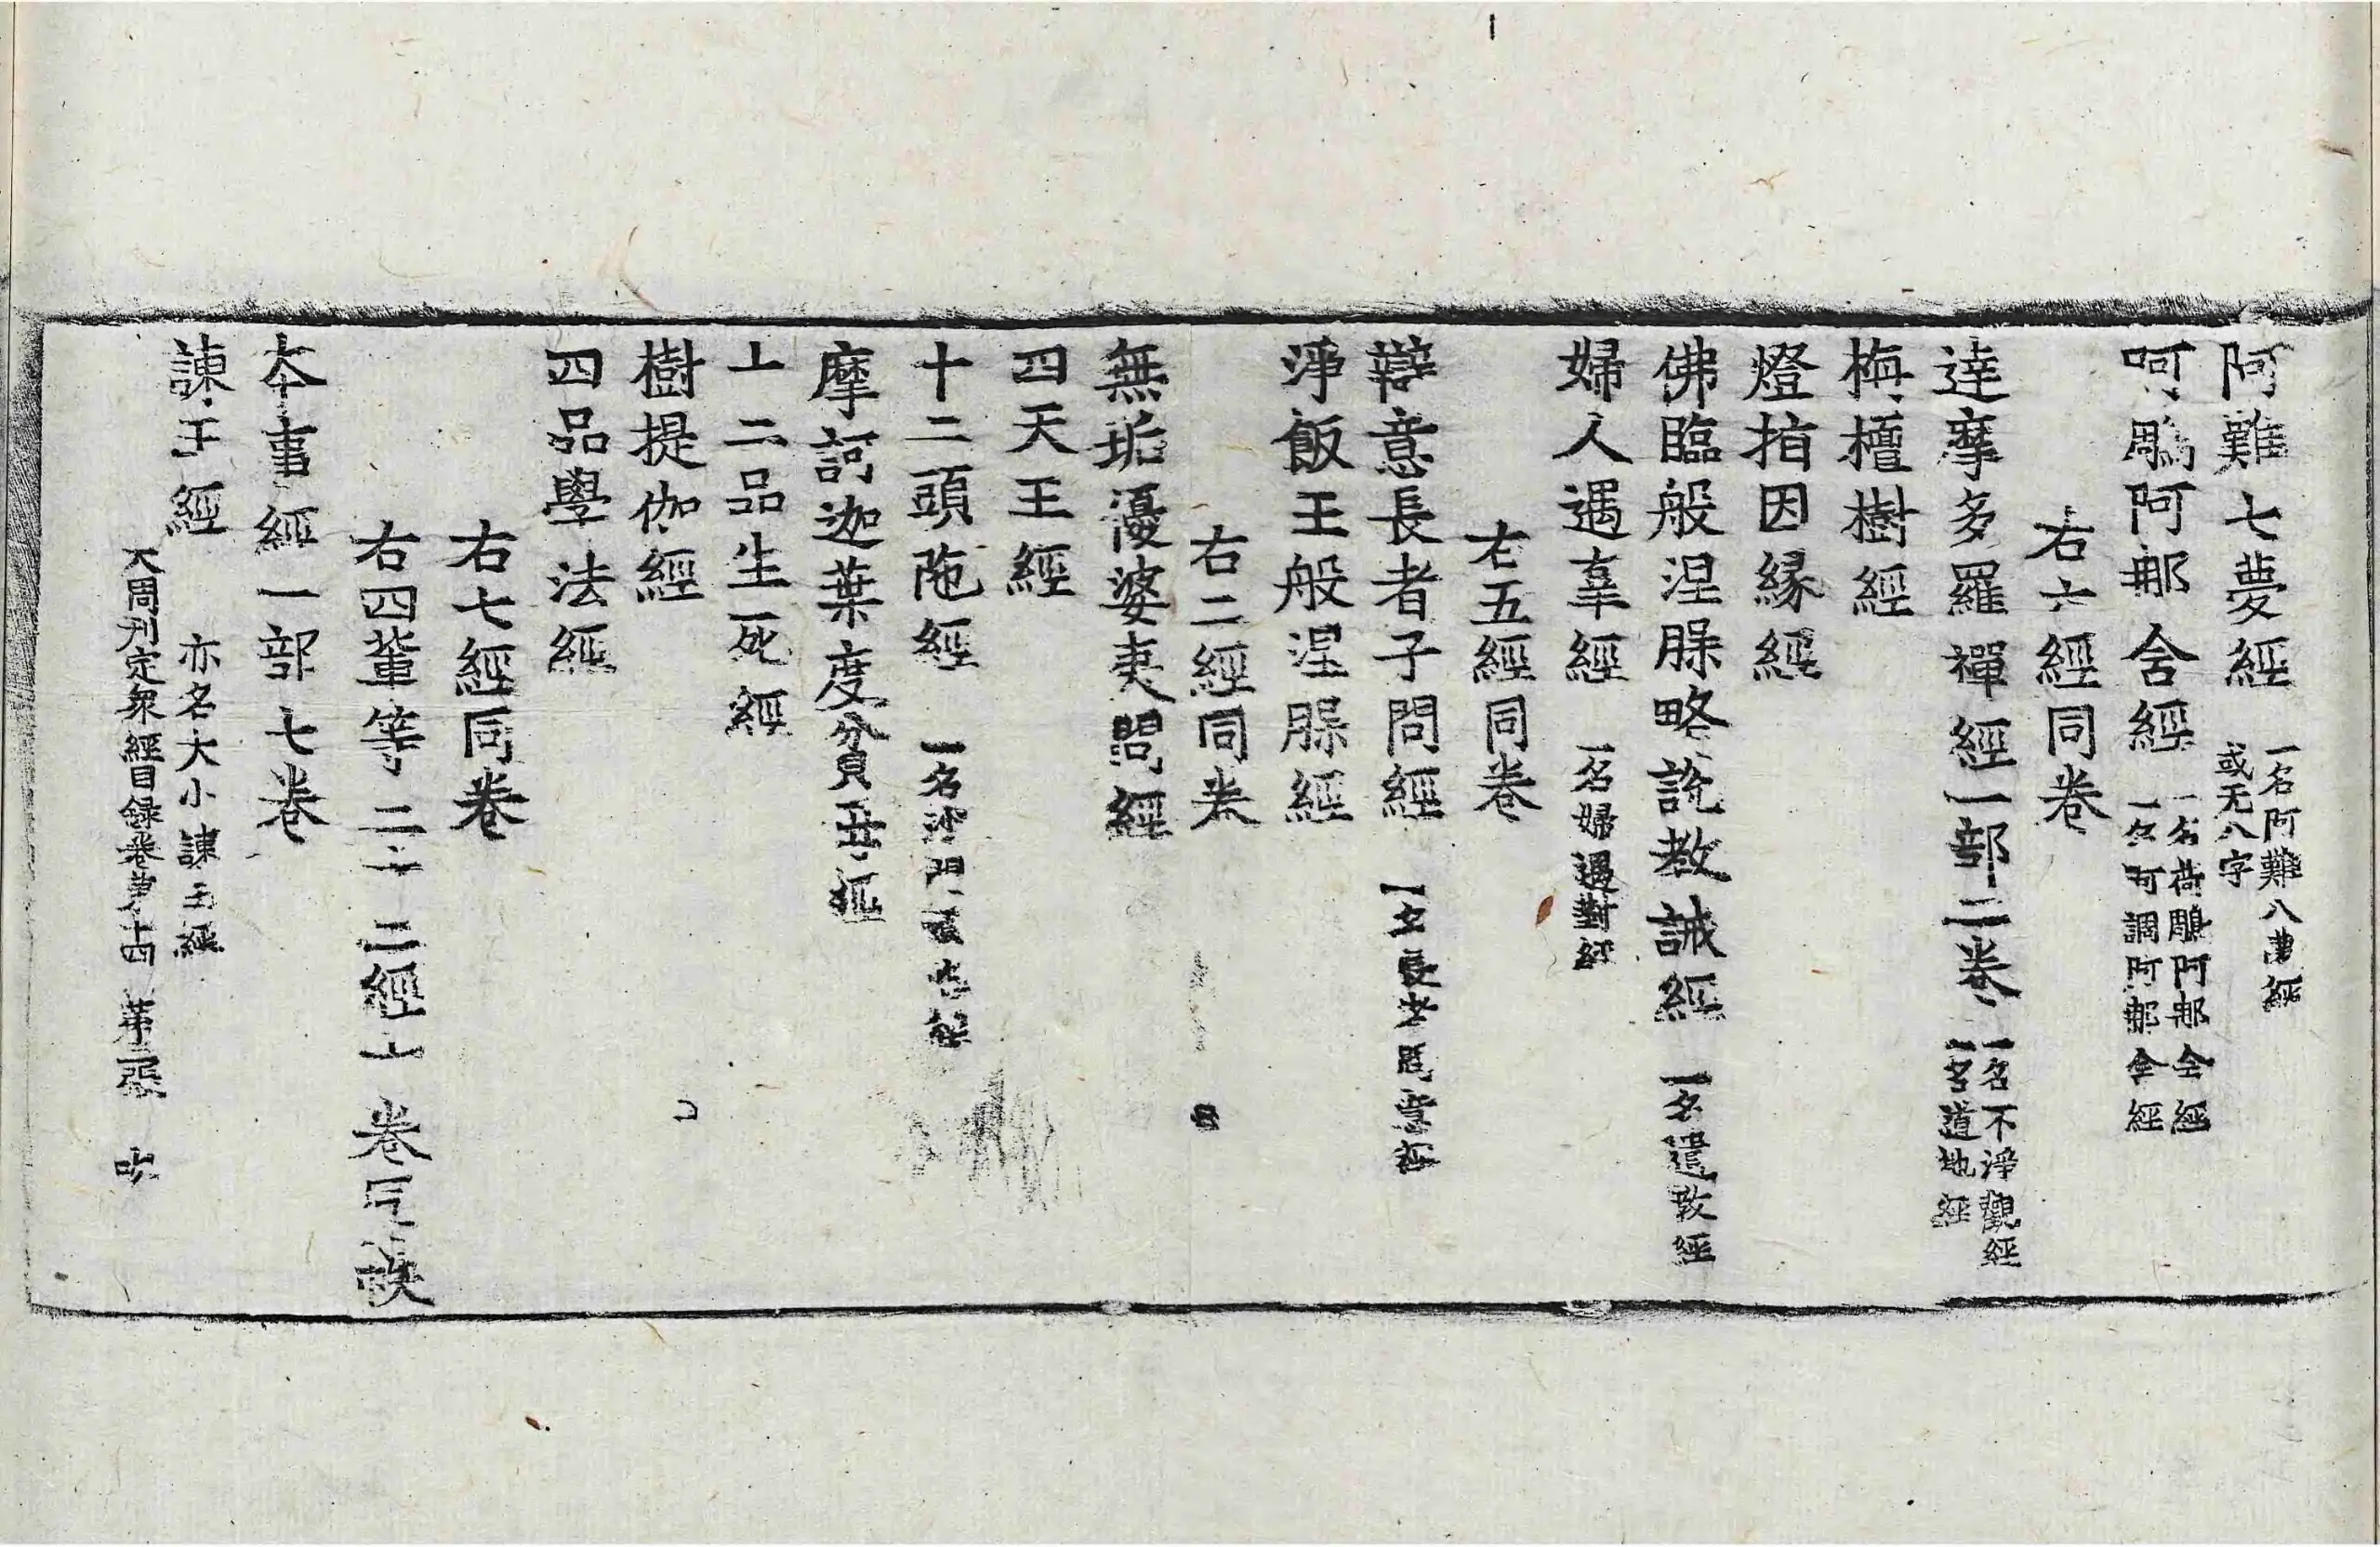 阿難七夢經 一名阿難八夢經
或无八字
呵鵰阿那含經 一名荷鵰阿那含經
一名呵調阿那含經
右六經同卷
達摩多羅禪經一部二卷 一名不淨觀經
一名道地經
栴檀樹經
燈指因縁經
佛臨般涅脲略說教誡經 一名遺敎經
婦人遇辜經 一名婦遇對經
右五經同卷
辯意長者子問經 一名長者
淨飯王般涅脲經
右二經同卷
無垢優婆夷問經
四天王經
十二頭陁經 一名沙門
摩訶迦葉度貧母經
十二品生死經
樹提伽經
四品學法經
右七經同卷
右四輩等二十二經十卷同袟
本事經一部七卷
諫王經
亦名大小諫王經
大周刊定衆經目録卷第十四 第二張